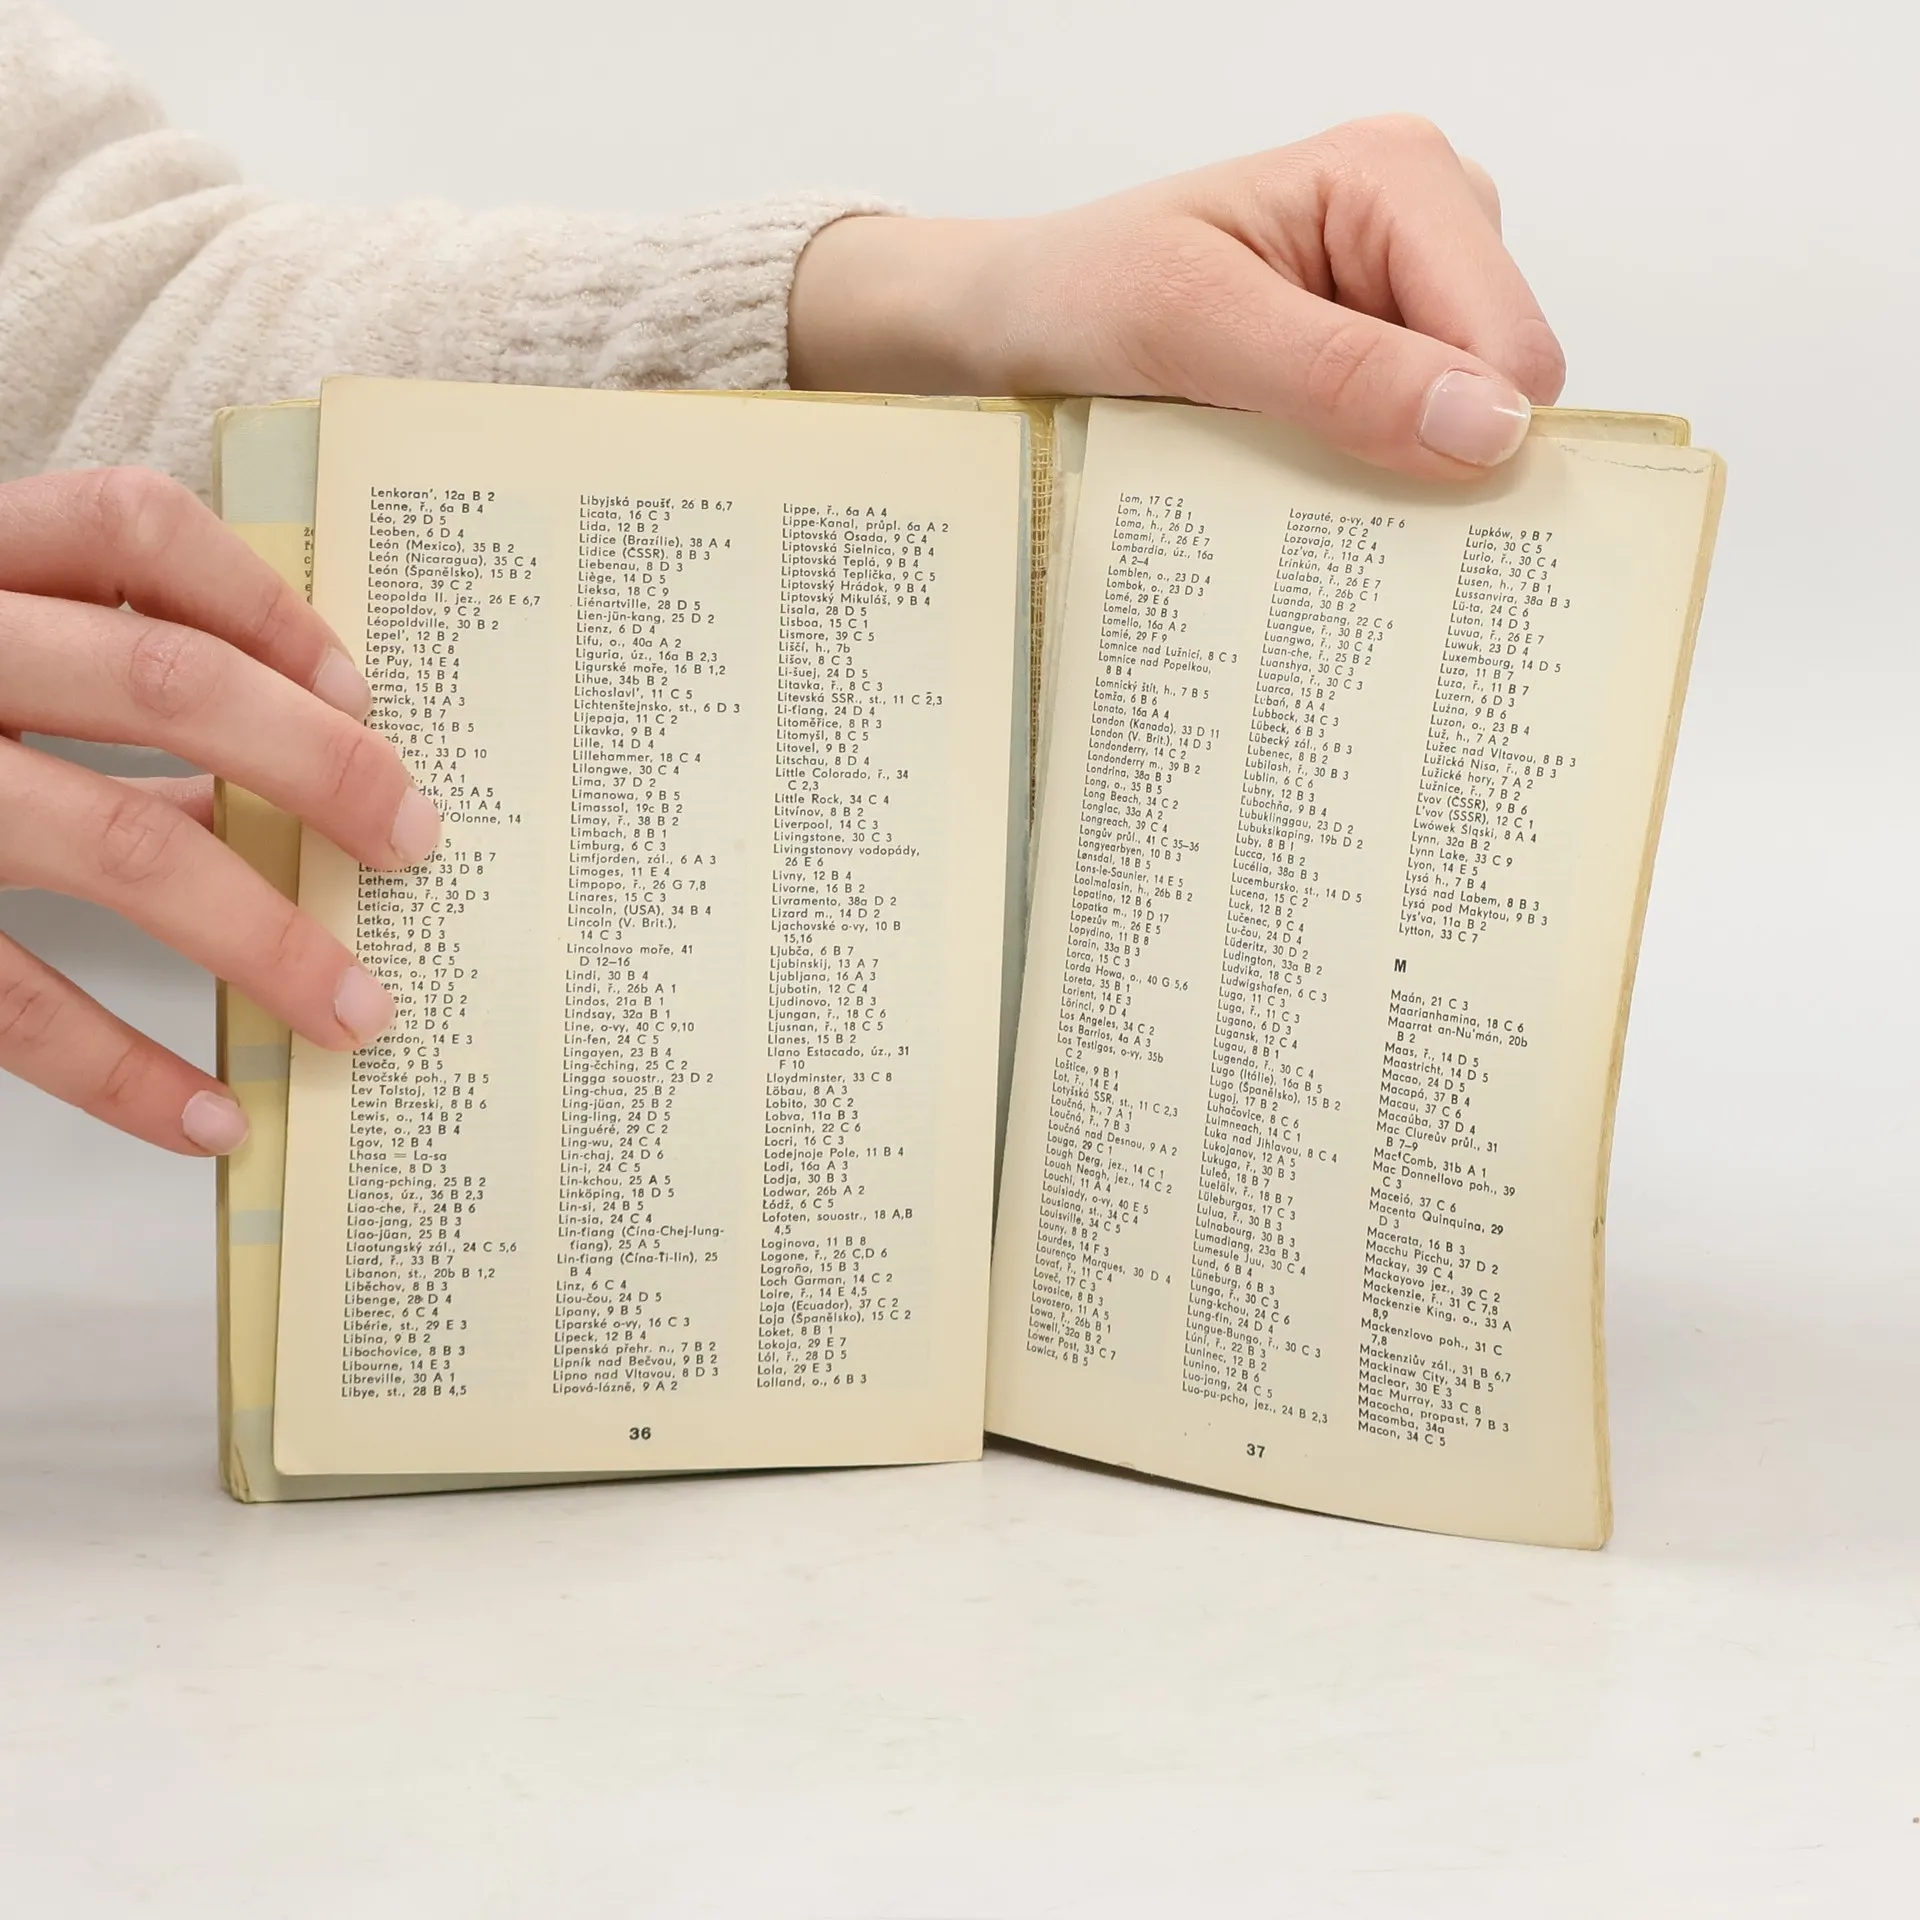 Lenkoran', 12a B 2
Lenne, ř., 6a B 4
Léo, 29 D 5
Leoben, 6 D 4
León (Mexico), 35 B 2
León (Nicaragua), 35 C 4
León (Španělsko), 15 B 2
Leonora, 39 C 2
Leopolda II. jez., 26 E 6,7
Leopoldov, 9 C 2
Léopoldville, 30 B 2
Lepel', 12 B 2
Lepsy, 13 C 8
Le Puy, 14 E 4
Lérida, 15 B 4
15 B 3
14 A 3
9 B 7
16 B 5
8 C 1
jez., 33 D 10
11 A 4
7 A 1
25 A 5
11 A 4
d'Olonne, 14
5
11 B 7
33 D 8
Lethem, 37 B 4
Letiahau, ř., 30 D 3
Leticia, 37 C 2,3
Letka, 11 C 7
Letkés, 9 D 3
Letohrad, 8 B 5
Letovice, 8 C 5
o., 17 D 2
14 D 5
17 D 2
18 C 4
12 D 6
14 E 3
Levice, 9 C 3
Levoča, 9 B 5
Levočské poh., 7 B 5
Lev Tolstoj, 12 B 4
Lewin Brzeski, 8 B 6
Lewis, o., 14 B 2
Leyte, o., 23 B 4
Lgov, 12 B 4
Lhasa = La-sa
Lhenice, 8 D 3
Liang-pching, 25 B 2
Lianos, úz., 36 B 2,3
Liao-che, ř., 24 B 6
Liao-jang, 25 B 3
Liao-jüan, 25 B 4
Liaotungský zál., 24 C 5,6
Liard, ř., 33 B 7
Libanon, st., 20b B 1,2
Liběchov, 8 B 3
Libenge, 28 D 4
Liberec, 6 C 4
Libérie, st., 29 E 3
Libina, 9 B 2
Libochovice, 8 B 3
Libourne, 14 E 3
Libreville, 30 A 1
Libye, st., 28 B 4,5
Libyjská poušť, 26 B 6,7
Licata, 16 C 3
Lida, 12 B 2
Lidice (Brazílie), 38 A 4
Lidice (ČSSR), 8 B 3
Liebenau, 8 D 3
Liège, 14 D 5
Lieksa, 18 C 9
Liénartville, 28 D 5
Lien-jün-kang, 25 D 2
Lienz, 6 D 4
Lifu, o., 40a A 2
Liguria, úz., 16a B 2,3
Ligurské moře, 16 B 1,2
Lihue, 34b B 2
Lichoslavl', 11 C 5
Lichtenštejnsko, st., 6 D 3
Lijepaja, 11 C 2
Likavka, 9 B 4
Lille, 14 D 4
Lillehammer, 18 C 4
Lilongwe, 30 C 4
Lima, 37 D 2
Limanowa, 9 B 5
Limassol, 19c B 2
Limay, ř., 38 B 2
Limbach, 8 B 1
Limburg, 6 C 3
Limfjorden, zál., 6 A 3
Limoges, 11 E 4
Limpopo, ř., 26 G 7,8
Linares, 15 C 3
Lincoln, (USA), 34 B 4
Lincoln (V. Brit.),
14 C 3
Lincolnovo moře, 41
D 12–16
Lindi, 30 B 4
Lindi, ř., 26b A 1
Lindos, 21a B 1
Lindsay, 32a B 1
Line, o-vy, 40 C 9,10
Lin-fen, 24 C 5
Lingayen, 23 B 4
Ling-čching, 25 C 2
Lingga souostr., 23 D 2
Ling-chua, 25 B 2
Ling-jüan, 25 B 2
Ling-ling, 24 D 5
Linguéré, 29 C 2
Ling-wu, 24 C 4
Lin-chaj, 24 D 6
Lin-i, 24 C 5
Lin-kchou, 25 A 5
Linköping, 18 D 5
Lin-si, 24 B 5
Lin-sia, 24 C 4
Lin-ťiang (Čína-Chej-lung-
ťiang), 25 A 5
Lin-ťiang (Čína-Ťi-lin), 25
B 4
Linz, 6 C 4
Liou-čou, 24 D 5
Lipany, 9 B 5
Liparské o-vy, 16 C 3
Lipeck, 12 B 4
Lipenská přehr. n., 7 B 2
Lipník nad Bečvou, 9 B 2
Lipno nad Vltavou, 8 D 3
Lipová-lázně, 9 A 2
Lippe, ř., 6a A 4
Lippe-Kanal, průpl. 6a A 2
Liptovská Osada, 9 C 4
Liptovská Sielnica, 9 B 4
Liptovská Teplá, 9 B 4
Liptovská Teplička, 9 C 5
Liptovský Hrádok, 9 B 4
Liptovský Mikuláš, 9 B 4
Lisala, 28 D 5
Lisboa, 15 C 1
Lismore, 39 C 5
Liščí, h., 7b
Lišov, 8 C 3
Li-šuej, 24 D 5
Litavka, ř., 8 C 3
Litevská SSR., st., 11 C 2,3
Li-ťiang, 24 D 4
Litoměřice, 8 B 3
Litomyšl, 8 C 5
Litovel, 9 B 2
Litschau, 8 D 4
Little Colorado, ř., 34
C 2,3
Little Rock, 34 C 4
Litvínov, 8 B 2
Liverpool, 14 C 3
Livingstone, 30 C 3
Livingstonovy vodopády,
26 E 6
Livny, 12 B 4
Livorne, 16 B 2
Livramento, 38a D 2
Lizard m., 14 D 2
Ljachovské o-vy, 10 B
15,16
Ljubča, 6 B 7
Ljubinskij, 13 A 7
Ljubljana, 16 A 3
Ljubotin, 12 C 4
Ljudinovo, 12 B 3
Ljungan, ř., 18 C 6
Ljusnan, ř., 18 C 5
Llanes, 15 B 2
Llano Estacado, úz., 31
F 10
Lloydminster, 33 C 8
Löbau, 8 A 3
Lobito, 30 C 2
Lobva, 11a B 3
Locninh, 22 C 6
Locri, 16 C 3
Lodejnoje Pole, 11 B 4
Lodi, 16a A 3
Lodja, 30 B 3
Lodwar, 26b A 2
Łódź, 6 C 5
Lofoten, souostr., 18 A,B
4,5
Loginova, 11 B 8
Logone, ř., 26 C,D 6
Logroño, 15 B 3
Loch Garman, 14 C 2
Loire, ř., 14 E 4,5
Loja (Ecuador), 37 C 2
Loja (Španělsko), 15 C 2
Loket, 8 B 1
Lokoja, 29 E 7
Lól, ř., 28 D 5
Lola, 29 E 3
Lolland, o., 6 B 3
36
Lom, 17 C 2
Lom, h., 7 B 1
Loma, h., 26 D 3
Lomami, ř., 26 E 7
Lombardia, úz., 16a
A 2–4
Lomblen, o., 23 D 4
Lombok, o., 23 D 3
Lomé, 29 E 6
Lomela, 30 B 3
Lomello, 16a A 2
Lomié, 29 F 9
Lomnice nad Lužnicí, 8 C 3
Lomnice nad Popelkou,
8 B 4
Lomnický štít, h., 7 B 5
Lomža, 6 B 6
Lonato, 16a A 4
London (Kanada), 33 D 11
London (V. Brit.), 14 D 3
Londonderry, 14 C 2
Londonderry m., 39 B 2
Londrina, 38a B 3
Long, o., 35 B 5
Long Beach, 34 C 2
Longlac, 33a A 2
Longreach, 39 C 4
Longův průl., 41 C 35–36
Longyearbyen, 10 B 3
Lønsdal, 18 B 5
Lons-le-Saunier, 14 E 5
Loolmalasin, h., 26b B 2
Lopatino, 12 B 6
Lopatka m., 19 D 17
Lopezův m., 26 E 5
Lopydino, 11 B 8
Lorain, 33a B 3
Lorca, 15 C 3
Lorda Howa, o., 40 G 5,6
Loreta, 35 B 1
Lorient, 14 E 3
Lörinci, 9 D 4
Los Angeles, 34 C 2
Los Barrios, 4a A 3
Los Testigos, o-vy, 35b
C 2
Loštice, 9 B 1
Lot, ř., 14 E 4
Lotyšská SSR, st., 11 C 2,3
Loučná, h., 7 A 1
Loučná, ř., 7 B 3
Loučná nad Desnou, 9 A 2
Louga, 29 C 1
Lough Derg, jez., 14 C 1
Lough Neagh, jez., 14 C 2
Louchi, 11 A 4
Louisiady, o-vy, 40 E 5
Lousiana, st., 34 C 4
Louisville, 34 C 5
Louny, 8 B 2
Lourdes, 14 F 3
Lourenço Marques, 30 D 4
Lovať, ř., 11 C 4
Loveč, 17 C 3
Lovosice, 8 B 3
Lovozero, 11 A 5
Lowa, ř., 26b B 1
Lowell, 32a B 2
Lower Post, 33 C 7
Lowicz, 6 B 5
Loyauté, o-vy, 40 F 6
Lozorno, 9 C 2
Lozovaja, 12 C 4
Loz'va, ř., 11a A 3
Lrinkún, 4a B 3
Lualaba, ř., 26 E 7
Luama, ř., 26b C 1
Luanda, 30 B 2
Luangprabang, 22 C 6
Luangue, ř., 30 B 2,3
Luangwa, ř., 30 C 4
Luan-che, ř., 25 B 2
Luanshya, 30 C 3
Luapula, ř., 30 C 3
Luarca, 15 B 2
Lubań, 8 A 4
Lubbock, 34 C 3
Lübeck, 6 B 3
Lübecký zál., 6 B 3
Lubenec, 8 B 2
Lubilash, ř., 30 B 3
Lublin, 6 C 6
Lubny, 12 B 3
Ľubochňa, 9 B 4
Lubuklinggau, 23 D 2
Lubuksikaping, 19b D 2
Luby, 8 B 1
Lucca, 16 B 2
Lucélia, 38a B 3
Lucembursko, st., 14 D 5
Lucena, 15 C 2
Luck, 12 B 2
Lučenec, 9 C 4
Lu-čou, 24 D 4
Lüderitz, 30 D 2
Ludington, 33a B 2
Ludvika, 18 C 5
Ludwigshafen, 6 C 3
Luga, 11 C 3
Luga, ř., 11 C 3
Lugano, 6 D 3
Lugansk, 12 C 4
Lugau, 8 B 1
Lugenda, ř., 30 C 4
Lugo (Itálie), 16a B 5
Lugo (Španělsko), 15 B 2
Lugoj, 17 B 2
Luhačovice, 8 C 6
Luimneach, 14 C 1
Luka nad Jihlavou, 8 C 4
Lukojanov, 12 A 5
Lukuga, ř., 30 B 3
Luleå, 18 B 7
Luleälv, ř., 18 B 7
Lüleburgas, 17 C 3
Lulua, ř., 30 B 3
Lulnabourg, 30 B 3
Lumadiang, 23a B 3
Lumesule Juu, 30 C 4
Lund, 6 B 4
Lüneburg, 6 B 3
Lunga, ř., 30 C 3
Lung-kchou, 24 C 6
Lung-ťin, 24 D 4
Lungue-Bungo, ř., 30 C 3
Lúní, ř., 22 B 3
Luninec, 12 B 2
Lunino, 12 B 6
Luo-jang, 24 C 5
Luo-pu-pcho, jez., 24 B 2,3
Lupków, 9 B 7
Lurio, 30 C 5
Lurio, ř., 30 C 4
Lusaka, 30 C 3
Lusen, h., 7 B 1
Lussanvira, 38a B 3
Lü-ta, 24 C 6
Luton, 14 D 3
Luvua, ř., 26 E 7
Luwuk, 23 D 4
Luxembourg, 14 D 5
Luza, 11 B 7
Luza, ř., 11 B 7
Luzern, 6 D 3
Lužna, 9 B 6
Luzon, o., 23 B 4
Luž, h., 7 A 2
Lužec nad Vltavou, 8 B 3
Lužická Nisa, ř., 8 B 3
Lužické hory, 7 A 2
Lužnice, ř., 7 B 2
Ľvov (ČSSR), 9 B 6
L'vov (SSSR), 12 C 1
Lwówek Śląski, 8 A 4
Lynn, 32a B 2
Lynn Lake, 33 C 9
Lyon, 14 E 5
Lysá h., 7 B 4
Lysá nad Labem, 8 B 3
Lysá pod Makytou, 9 B 3
Lys'va, 11a B 2
Lytton, 33 C 7
M
Maán, 21 C 3
Maarianhamina, 18 C 6
Maarrat an-Nu'mán, 20b
B 2
Maas, ř., 14 D 5
Maastricht, 14 D 5
Macao, 24 D 5
Macapá, 37 B 4
Macau, 37 C 6
Macaúba, 37 D 4
Mac Clureův průl., 31
B 7–9
Mac Comb, 31b A 1
Mac Donnellovo poh., 39
C 3
Maceió, 37 C 6
Macenta Quinquina, 29
D 3
Macerata, 16 B 3
Macchu Picchu, 37 D 2
Mackay, 39 C 4
Mackayovo jez., 39 C 2
Mackenzie, ř., 31 C 7,8
Mackenzie King, o., 33 A
8,9
Mackenzlovo poh., 31 C
7,8
Mackenziův zál., 31 B 6,7
Mackinaw City, 34 B 5
Maclear, 30 E 3
Mac Murray, 33 C 8
Macocha, propast, 7 B 3
Macomba, 34a
Macon, 34 C 5
37